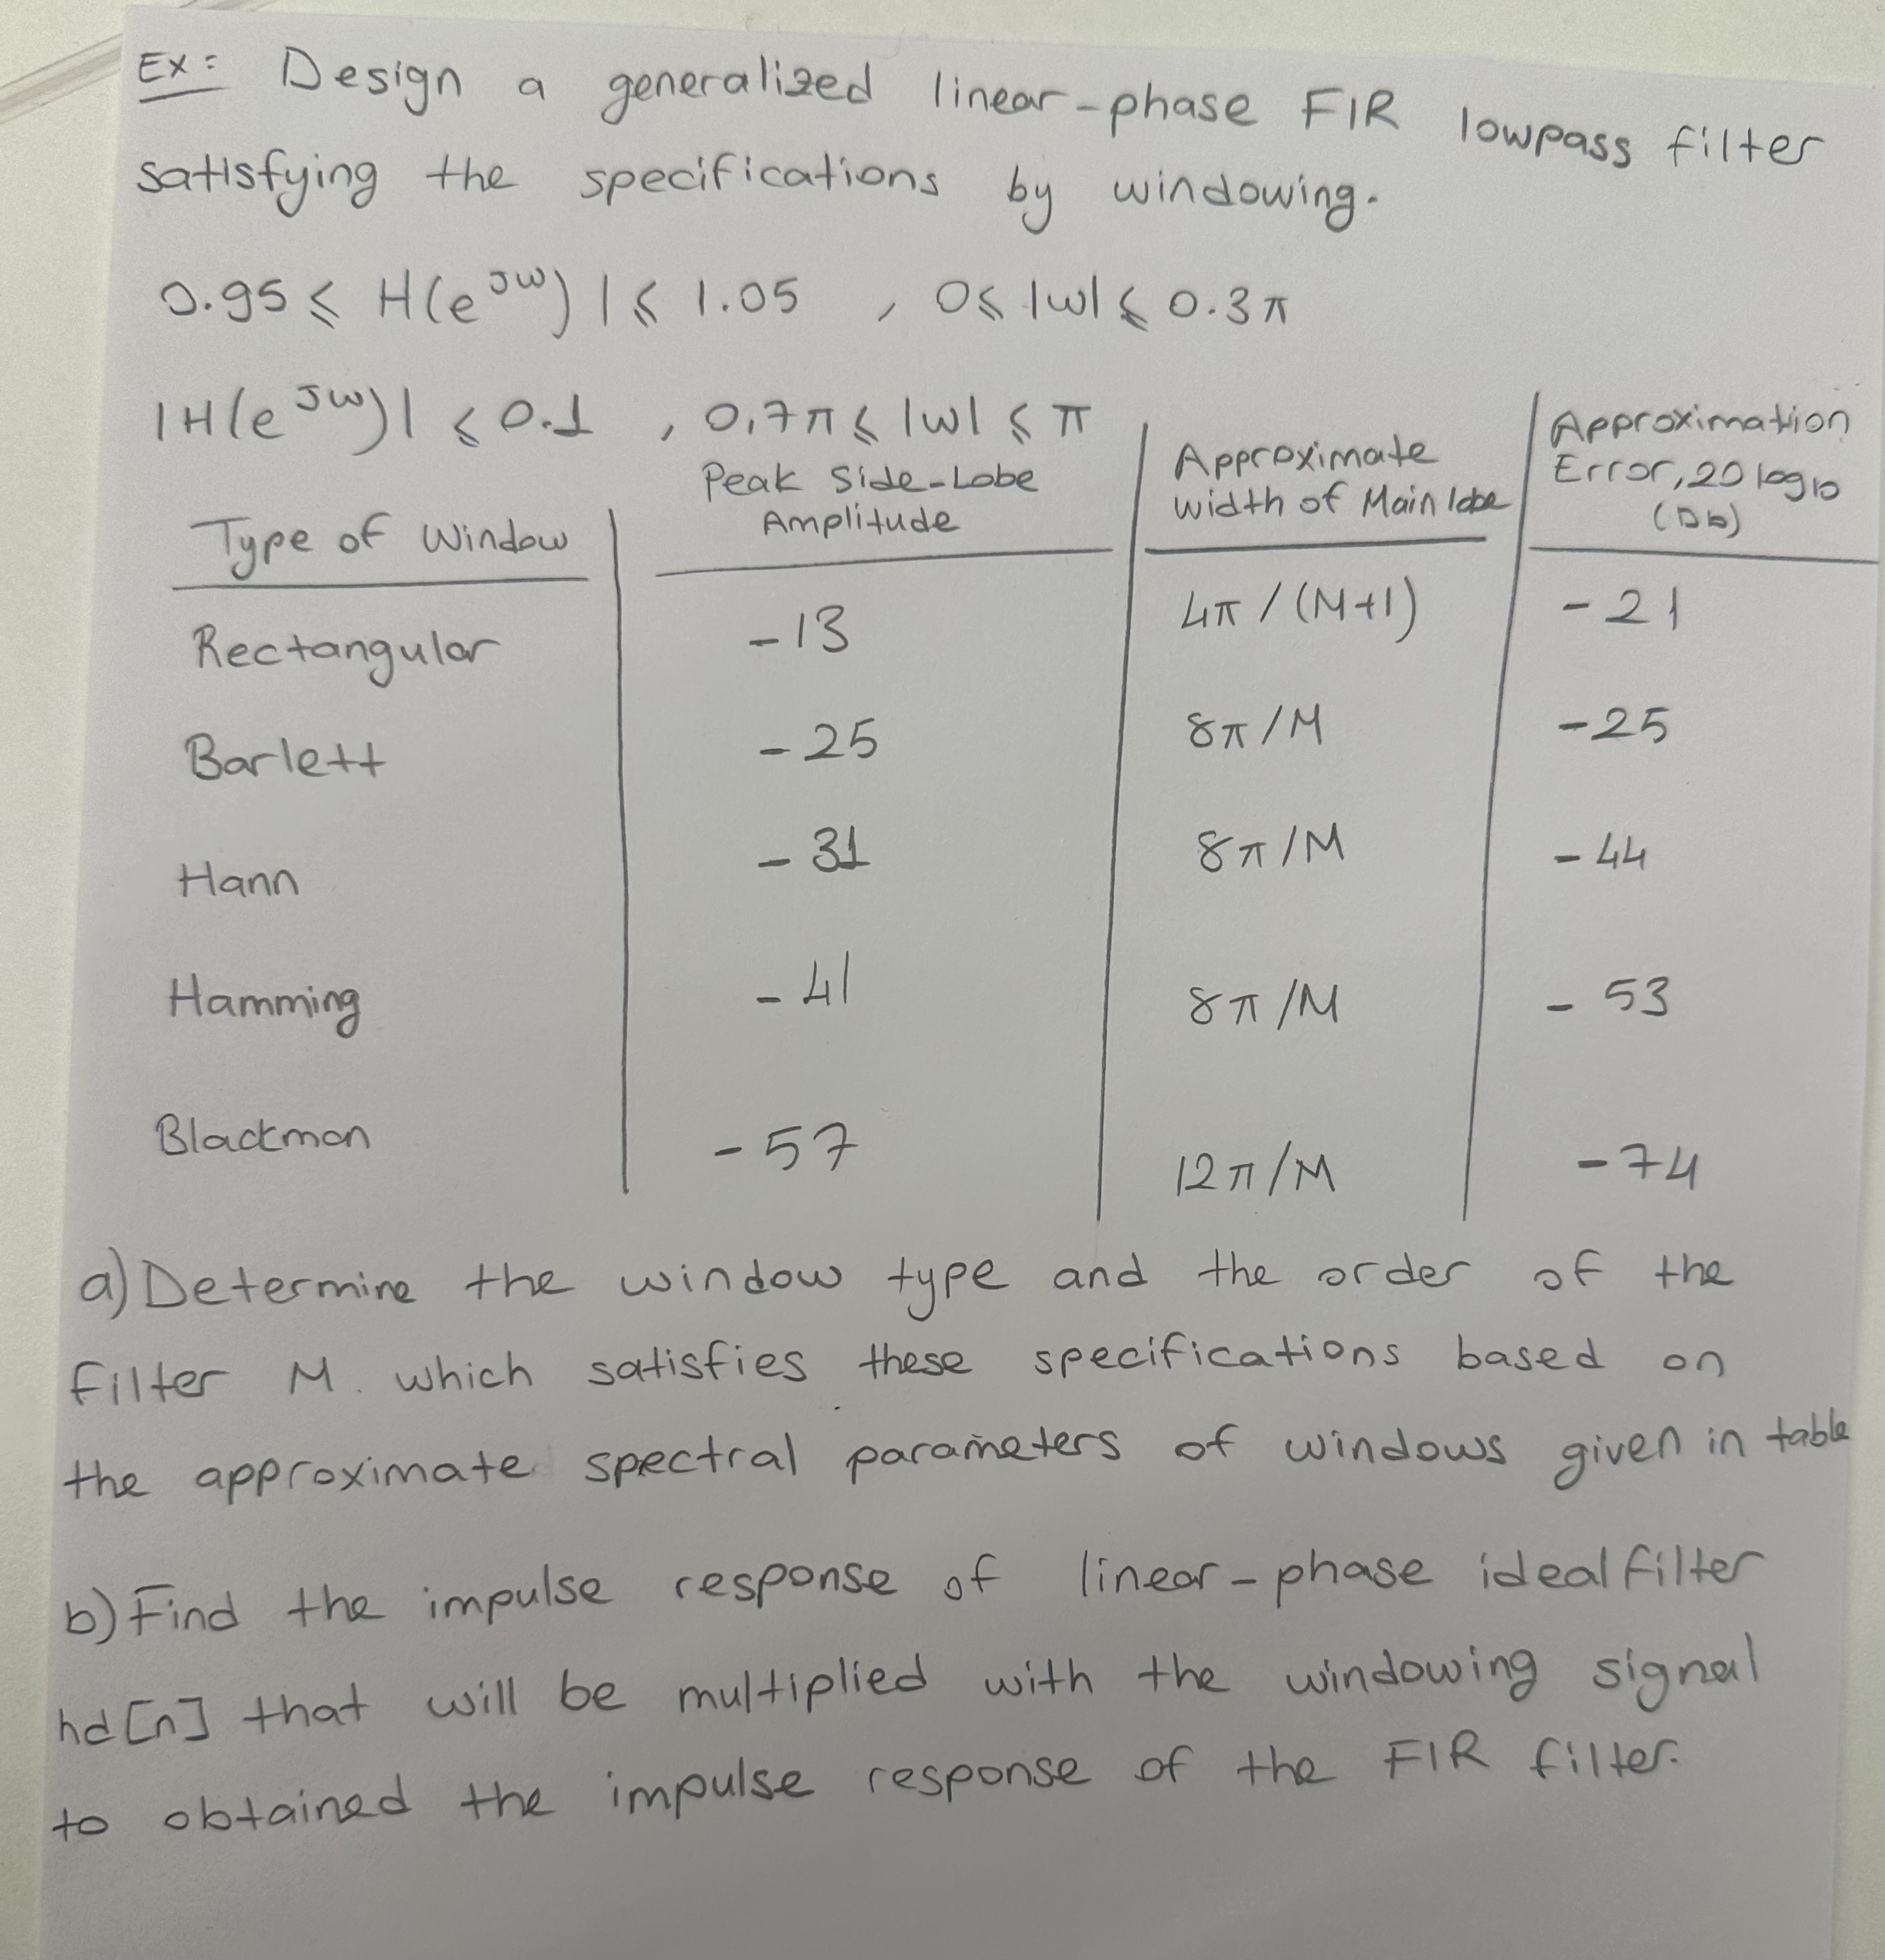 Ex: Design a generalized linear-phase FIR lowpass filter
satisfying the specifications by windowing.
0.95 ⩽ H(e^jw) | ⩽ 1.05 , 0 ⩽ |w| ⩽ 0.3π
|H(e^jw)| ⩽ 0.1 , 0,7π ⩽ |w| ⩽ π
Type of Window | Peak Side-Lobe Amplitude | Approximate width of Main lobe | Approximation Error, 20 log10 (Db)
Rectangular | -13 | 4π / (M+1) | -21
Barlett | -25 | 8π/M | -25
Hann | -31 | 8π/M | -44
Hamming | -41 | 8π/M | -53
Blackman | -57 | 12π/M | -74
a) Determine the window type and the order of the
filter M. which satisfies these specifications based on
the approximate spectral parameters of windows given in table
b) Find the impulse response of linear-phase ideal filter
hd[n] that will be multiplied with the windowing signal
to obtained the impulse response of the FIR filter.